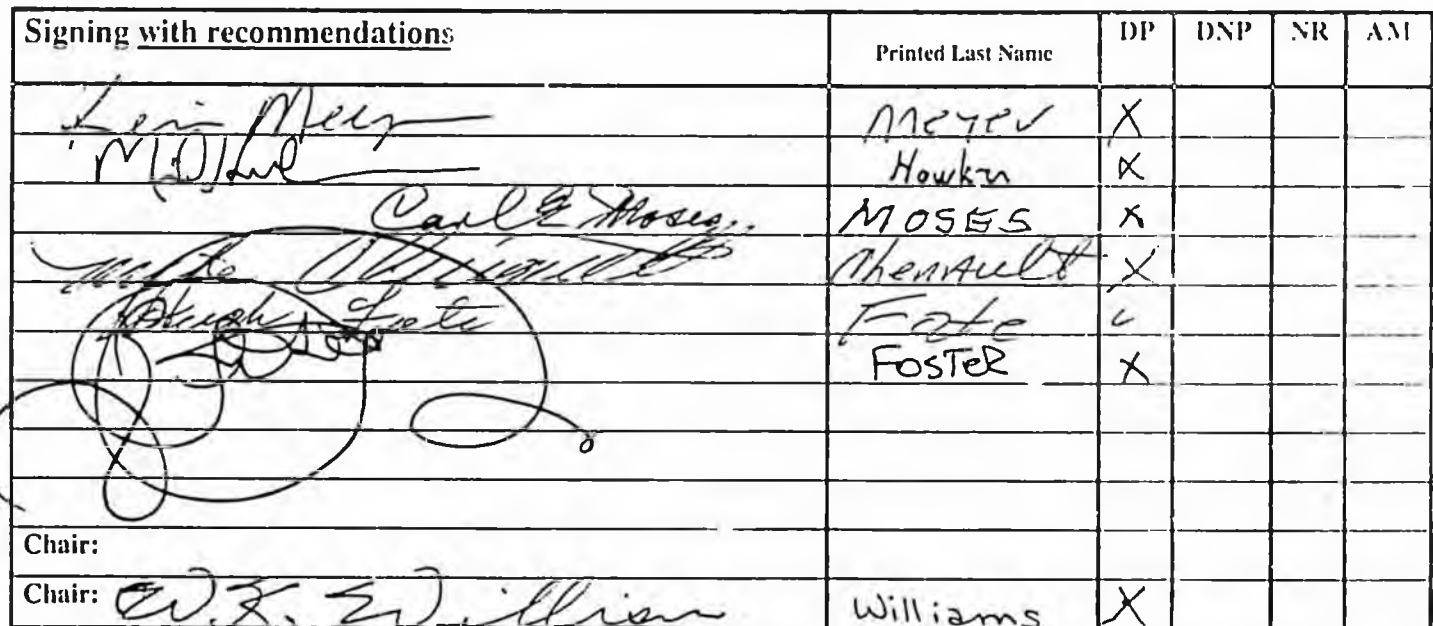 Signing with recommendations Printed Last Name DP DNP NR AM
Kevin Meyer Meyer X
Hawker X
Carl E Moses MOSES X
Mike Chenault Chenault X
Hugh Fate Fate
FOSTER X
Chair:
Chair: W. K. Williams Williams X